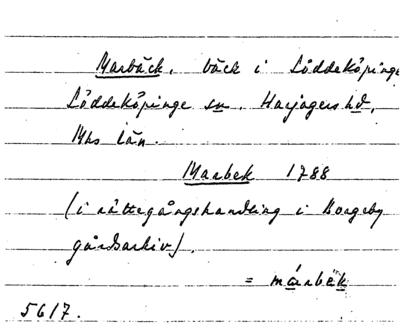 Marbäck, bäck i Löddeköpinge
Löddeköpinge sn, Harjagers hd,
Mhs län.
Marbek 1788
(i rättegångshandling i Borgeby
gårdsarkiv).
= márbèk
5617.